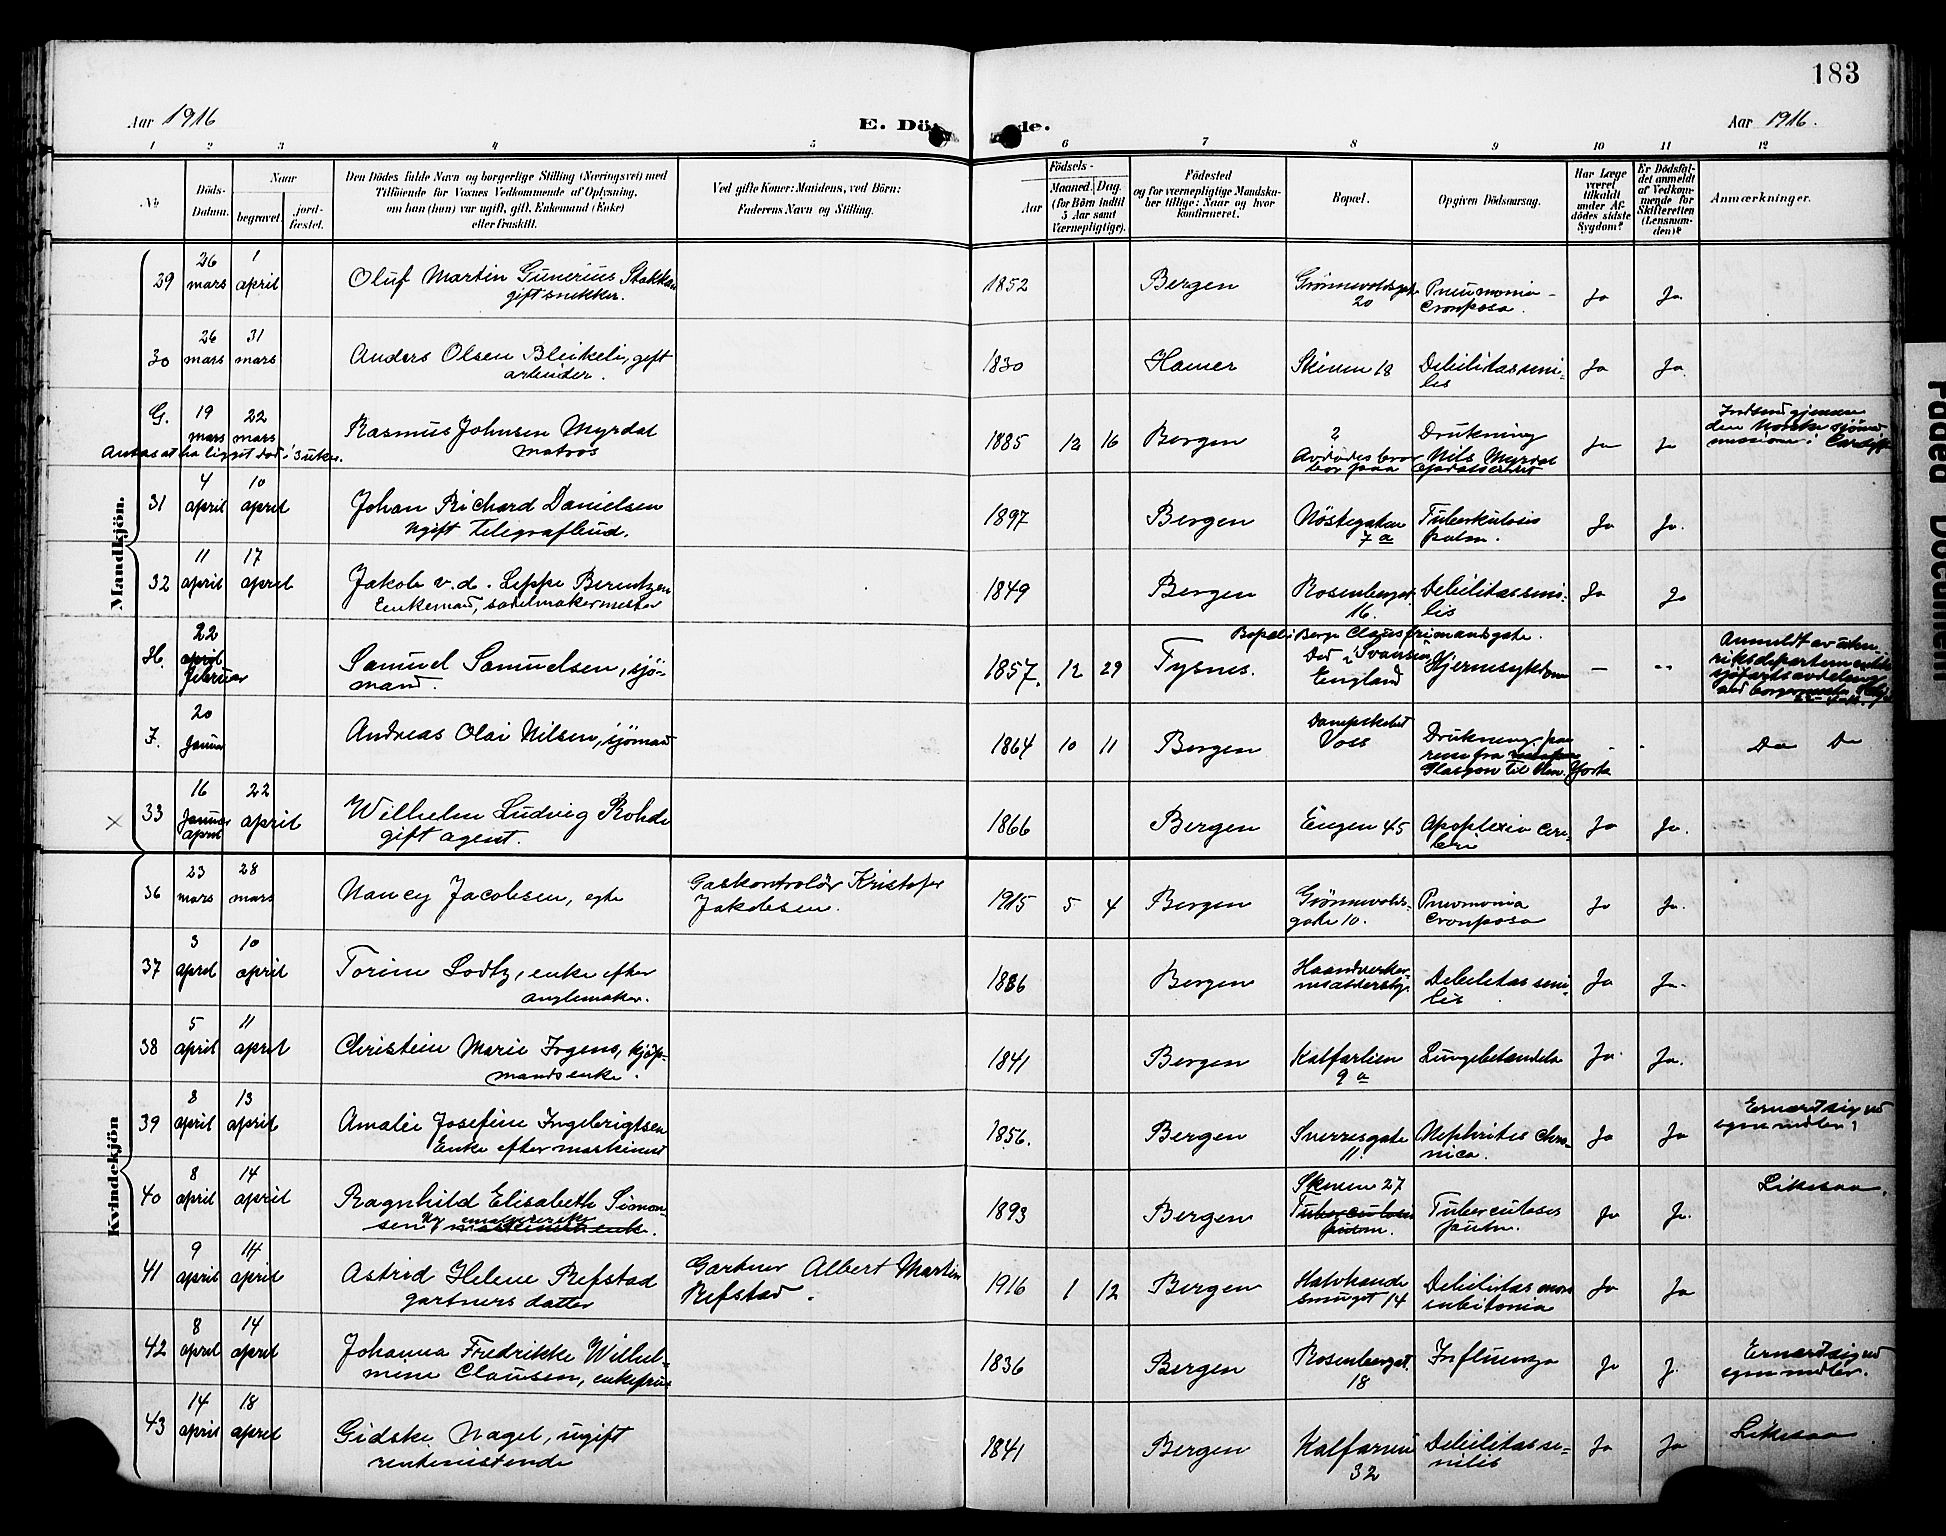 183
Aar 1916
E. Dö de.
Aar 1916.
1 2 3 4 5 6 7 8 9 10 11 12
No
Döds-
Datum.
Naar
begravet.
jord-
fæstet.
Den Dödes fulde Navn og borgerlige Stilling (Næringsvei) med
Tilföiende for Voxnes Vedkommende af Oplysning,
om han (hun) var ugift, gift, Enkemand (Enke)
eller fraskilt.
Ved gifte Koner: Mandens, ved Börn:
Faderens Navn og Stilling.
Födsels-
Aar
Maaned. Dag.
(for Börn indtil
5 Aar samt
Værnepligtige).
Födested
og for værnepligtige Mandska-
ber tillige: Naar og hvor
konfirmeret.
Bopæl.
Opgiven Dödsaarsag.
Har Læge
været
tilkaldt
under Af-
dödes sidste
Sygdom?
Er Dödsfal-
det anmeldt
af Vedkom-
mende for
Skifteretten
(Lensman-
den)?
Anmærkninger.
Mandkjön.
39 26 mars 1 april Oluf Martin Gunerius Stakkan 1852 Bergen 20 Pneumonia Ja Ja.
gift snekker. Crouposa.
30 26 mars 31 mars Anders Olsen Bleikeli, gift 1830 Hamer Skiven 18 Debilitas seni- Ja Ja.
arbeider. lis
G. 19 mars 22 mars Rasmus Johnsen Myrdal 1885 12 16 Bergen ? Drukning Ja Ja
matros Avdødes bror Nils Myrdal
bor paa
Antas at ha ligget død i 3 uker.
den Norske sjømd
missionen i Cardiff
31 4 april 10 april Johan Richard Danielsen 1897 Bergen Nöstegaten Tuberkulosis Ja Ja.
ugift Telegrafbud. 7 a pulm.
32 11 april 17 april Jakob v.d. Lippe Berentzen 1849 Bergen Rosenbergsgt. Debilitas seni- Ja Ja
Enkemand, sadelmakermester 16. lis
H. 22 april februar Samuel Samuelsen, sjö- 1857. 12 29 Tysnes. Død i Svansea Hjernesykdom — "
mand. England
Claus frimandsgate.
Anmeldt av uten-
riksdepartementets
sjöfartsavdeling
J. 20 Januar Andreas Olai Nilsen, sjömand 1864 10 11 Bergen Dampskibet Drukning, paa - - Do Do
Voss reise fra
Glasgow til
33 16 Januar april 22 april Wilhelm Ludvig Rohde 1866 Bergen Engen 45 Apoplexia cere- Ja Ja.
gift agent. bri
Kvindekjön
36 23 mars 28 mars Nancy Jacobsen, egte Gaskontrolör Kristofer 1915 5 4 Bergen Grönnevolds- Pneomonia Ja Ja.
Jakobsen. gate 10. Crouposa
37 3 april 10 april Torine Lodtz, enke efter 1836 Bergen Haandverker- Debilitas seni- Ja Ja.
lis
38 5 april 11 april Christein Marie Irgens, kjöp- 1841 Bergen Kalfarlien Lungebetændelse Ja. Ja.
mandsenke. 9 a
39 8 april 13 april Amalie Josefine Ingebrigtsen 1856. Bergen Sverresgate Nephrites chro- Ja Ja Ernært sig ved
Enke efter maskinist 11. nica. egne midler.
40 8 april 14 april Ragnhild Elisabeth Simon- 1893 Bergen Skiven 27 Tuberculosis Ja Ja. Likesaa.
sen Tuberculosis pulm. pulm.
41 9 april 14 april Astrid Helene Refstad Gartner Albert Martin 1916 1 12 Bergen Halvkande Debilitas Ja Ja
gartners datter Refstad. smuget 14
42 8 april 14 april Johanna Fredrikke Wilhel- 1836 Bergen Rosenbergsgt. Influenza Ja J. Ernært sig ved
mine Clausen, enkefrue 18 egne midler.
43 14 april 18 april Gidske Nagel, ugift 1841 Bergen Kalfarvei Debilitas se- Ja Ja Likesaa
rentenistende 32 nilis
Faded Document